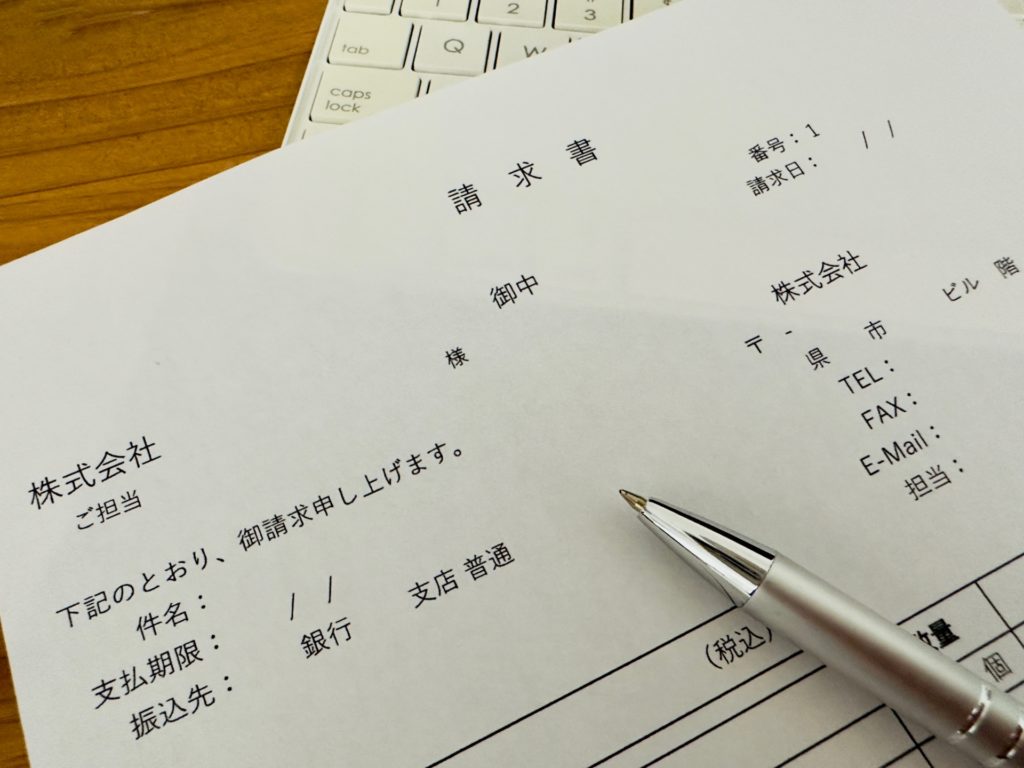 1 2 3
tab Q W
caps lock
請 求 書
番号：1
請求日： / /
株式会社 御中
ご担当 様
株式会社
〒 -
県 市 ビル 階
TEL：
FAX：
E-Mail：
担当：
下記のとおり、御請求申し上げます。
件名：
支払期限： / /
振込先： 銀行 支店 普通
(税込)
数量
個